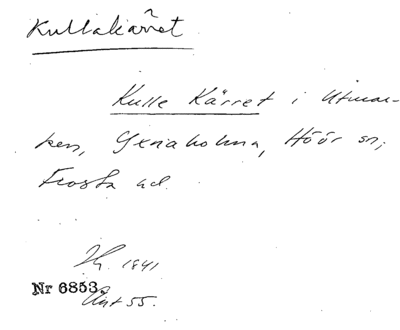 Kullakärret
Kulle Kärret i Utmar-
ken, Yxnaholma, Höör sn,
Frosta hd.
1841
Nr 6853
Akt 55.